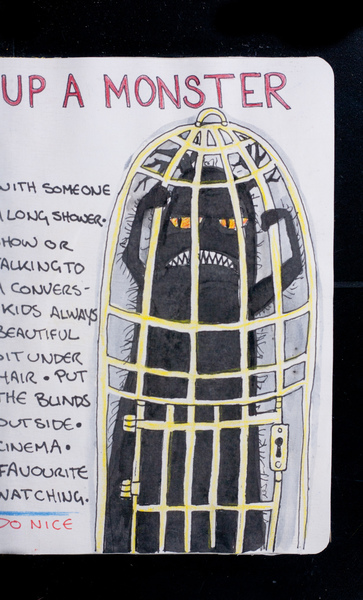 UP A MONSTER
WITH SOMEONE
A LONG SHOWER.
SHOW OR
TALKING TO
A CONVERS-
KIDS ALWAYS
BEAUTIFUL
IT UNDER
HAIR • PUT
THE BLINDS
OUTSIDE •
CINEMA •
FAVOURITE
WATCHING.
DO NICE